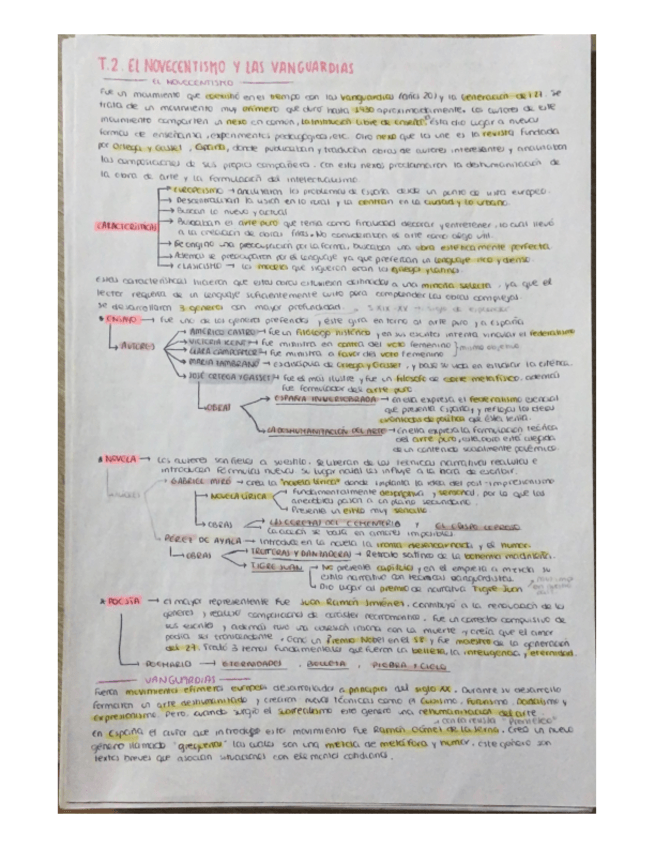 T.2. EL NOVECENTISMO Y LAS VANGUARDIAS
EL NOVECENTISMO
Fue un movimiento que coexistió en el tiempo con las vanguardias (años 20) y la Generación del 27. Se
trata de un movimiento muy efímero que duró hasta 1930 aproximadamente. Los autores de este
movimiento comparten un nexo en común, la Institución Libre de Enseñ. Esta dio lugar a nuevas
formas de enseñanza, experimentos pedagógicos, etc. Otro nexo que los une es la revista fundada
por Ortega y Gasset, España, donde publicaban y traducían obras de autores interesantes y
las composiciones de sus propios compañeros. Con estos nexos proclamaron la deshumanización de
la obra de arte y la formulación del intelectualismo.
EUROPEISMO → analizaron los problemas de España desde un punto de vista europeo.
Descentralizan la visión en lo rural y la centran en la ciudad y lo urbano.
Buscan lo nuevo y actual
CARACTERÍSTICAS
Buscaban el arte puro que tenía como finalidad decorar y entretener, lo cual llevó
a la creación de obras. No consideraban el arte como algo útil.
una preocupación por la forma, buscaban una obra estéticamente perfecta.
Además se preocuparon por el lenguaje ya que preferían un lenguaje rico y denso.
CLASICISMO → los modelos que siguieron eran los griegos y latinos.
Estas características hicieron que estas obras estuviesen destinadas a una minoría selecta, ya que el
lector requería de un lenguaje suficientemente culto para comprender las obras complejas.
Se desarrollaron 3 géneros con mayor profundidad.
* ENSAYO → fue uno de los géneros preferidos y este gira en torno al arte puro y a España
AUTORES
AMÉRICO CASTRO → fue un filólogo histórico y en sus escritos intenta vincular el federalismo
VICTORIA KENT → fue ministra en contra del voto femenino
CLARA CAMPOAMOR → fue ministra a favor del voto femenino
MARÍA ZAMBRANO → es discípula de Ortega y Gasset, y basó su vida en estudiar la estética.
JOSÉ ORTEGA Y GASSET → fue el más ilustre y fue un filósofo de corte metafísico, además
fue formulador del arte puro
OBRAS
ESPAÑA INVERTEBRADA → en ella expresa el federalismo esencial
que presenta España, y refleja las ideas
de política que ésta tenía.
LA DESHUMANIZACIÓN DEL ARTE → En ella expresa la formulación teórica
del arte puro, este arte está alejado
de un contenido socialmente polémico.
* NOVELA → Los autores son fieles a su estilo, se liberan de las técnicas narrativas realistas e
introducen fórmulas nuevas. Su lugar natal les influye a la hora de escribir.
AUTORES
GABRIEL MIRÓ → crea la "novela lírica" donde implanta la idea del post-impresionismo
NOVELA LÍRICA
Fundamentalmente descriptiva y sensorial, por lo que las
anécdotas pasan a un plano secundario.
Presenta un estilo muy sencillo
OBRAS
LAS CEREZAS DEL CEMENTERIO Y EL OBISPO LEPROSO
La acción se basa en amores imposibles.
PÉREZ DE AYALA → Introduce en la novela la ironía desencarnada y el humor.
OBRAS
TROTERAS Y DANZADERAS → Retrato satírico de la bohemia madrileña.
TIGRE JUAN
No presenta capítulos y en él empieza a mezclar su
estilo narrativo con técnicas vanguardistas.
Dio lugar al premio de narrativa Tigre Juan
* POESÍA → el mayor representante fue Juan Ramón Jiménez, contribuyó a la renovación de los
géneros y realizó composiciones de carácter neorromántico. Fue un corrector compulsivo de
sus escritos y además tuvo una obsesión insana con la muerte y creía que el amor
podía ser trascendente. Ganó un Premio Nobel en el 56 y fue maestro de la generación
del 27. Trató 3 temas fundamentales que fueron la belleza, la inteligencia y eternidad.
POEMARIO → ETERNIDADES, BELLEZA, PIEDRA Y CIELO
VANGUARDIAS
Fueron movimientos efímeros europeos desarrollados a principios del siglo XX. Durante su desarrollo
formaron un arte deshumanizado y crearon nuevas técnicas como el cubismo, futurismo, dadaísmo y
expresionismo. Pero, cuando surgió el surrealismo este generó una rehumanización del arte.
con la revista "Prometeo"
en España el autor que introdujo este movimiento fue Ramón Gómez de la Serna. Creó un nuevo
género llamado "greguerías" las cuales son una mezcla de metáfora y humor. Este género son
textos breves que asocian situaciones con elementos cotidianos.